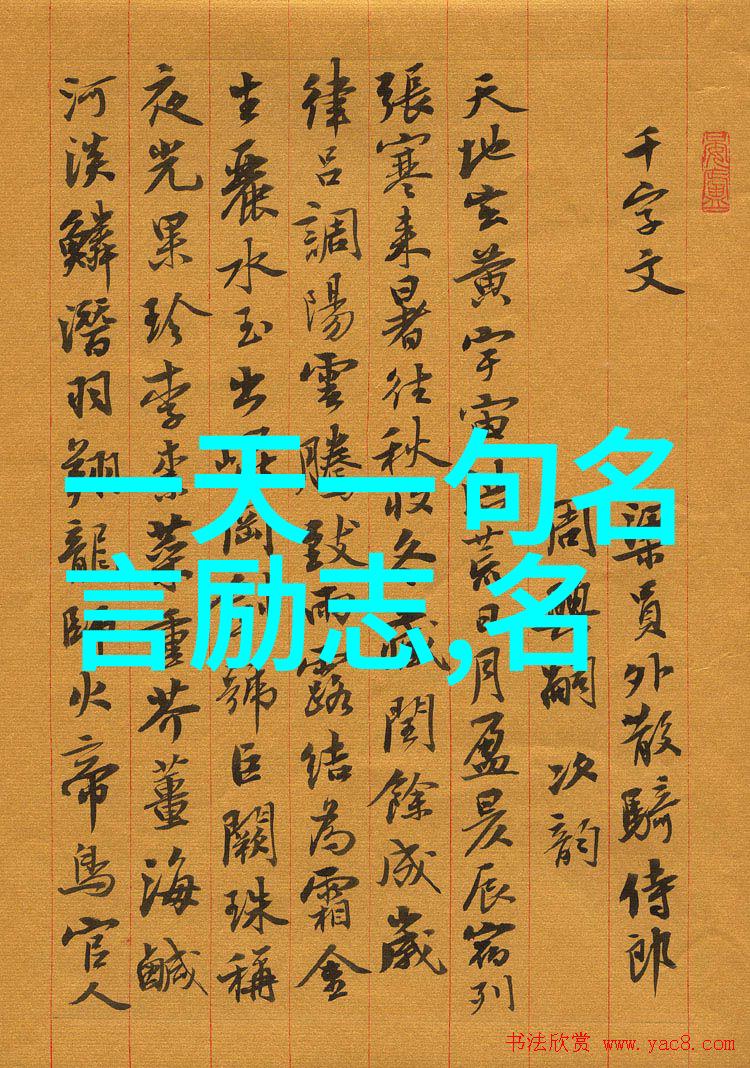 千字文 梁員外散騎侍郎
周興嗣 次韵
天地玄黄宇宙洪荒日月盈昃辰宿列
張寒来暑往秋收冬藏閏餘成歲
律吕調陽雲騰致雨露結為霜金
生麗水玉出崐岡劍號巨闕珠稱
夜光果珍李柰菜重芥薑海鹹
河淡鱗潛羽翔龍師火帝鳥官人
一天一句名
言励志,名
书法欣赏 www.yac8.com